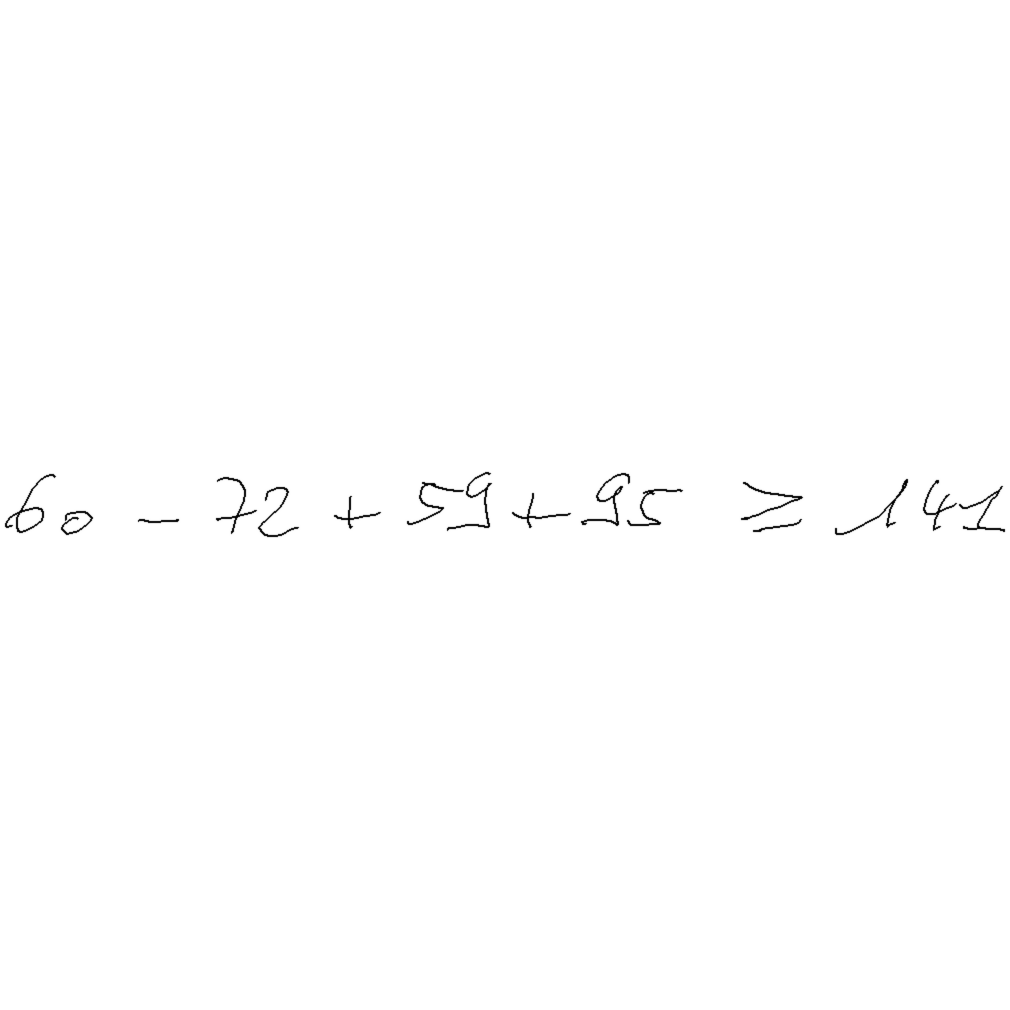 60 - 72 + 59 + 95 ≥ 141